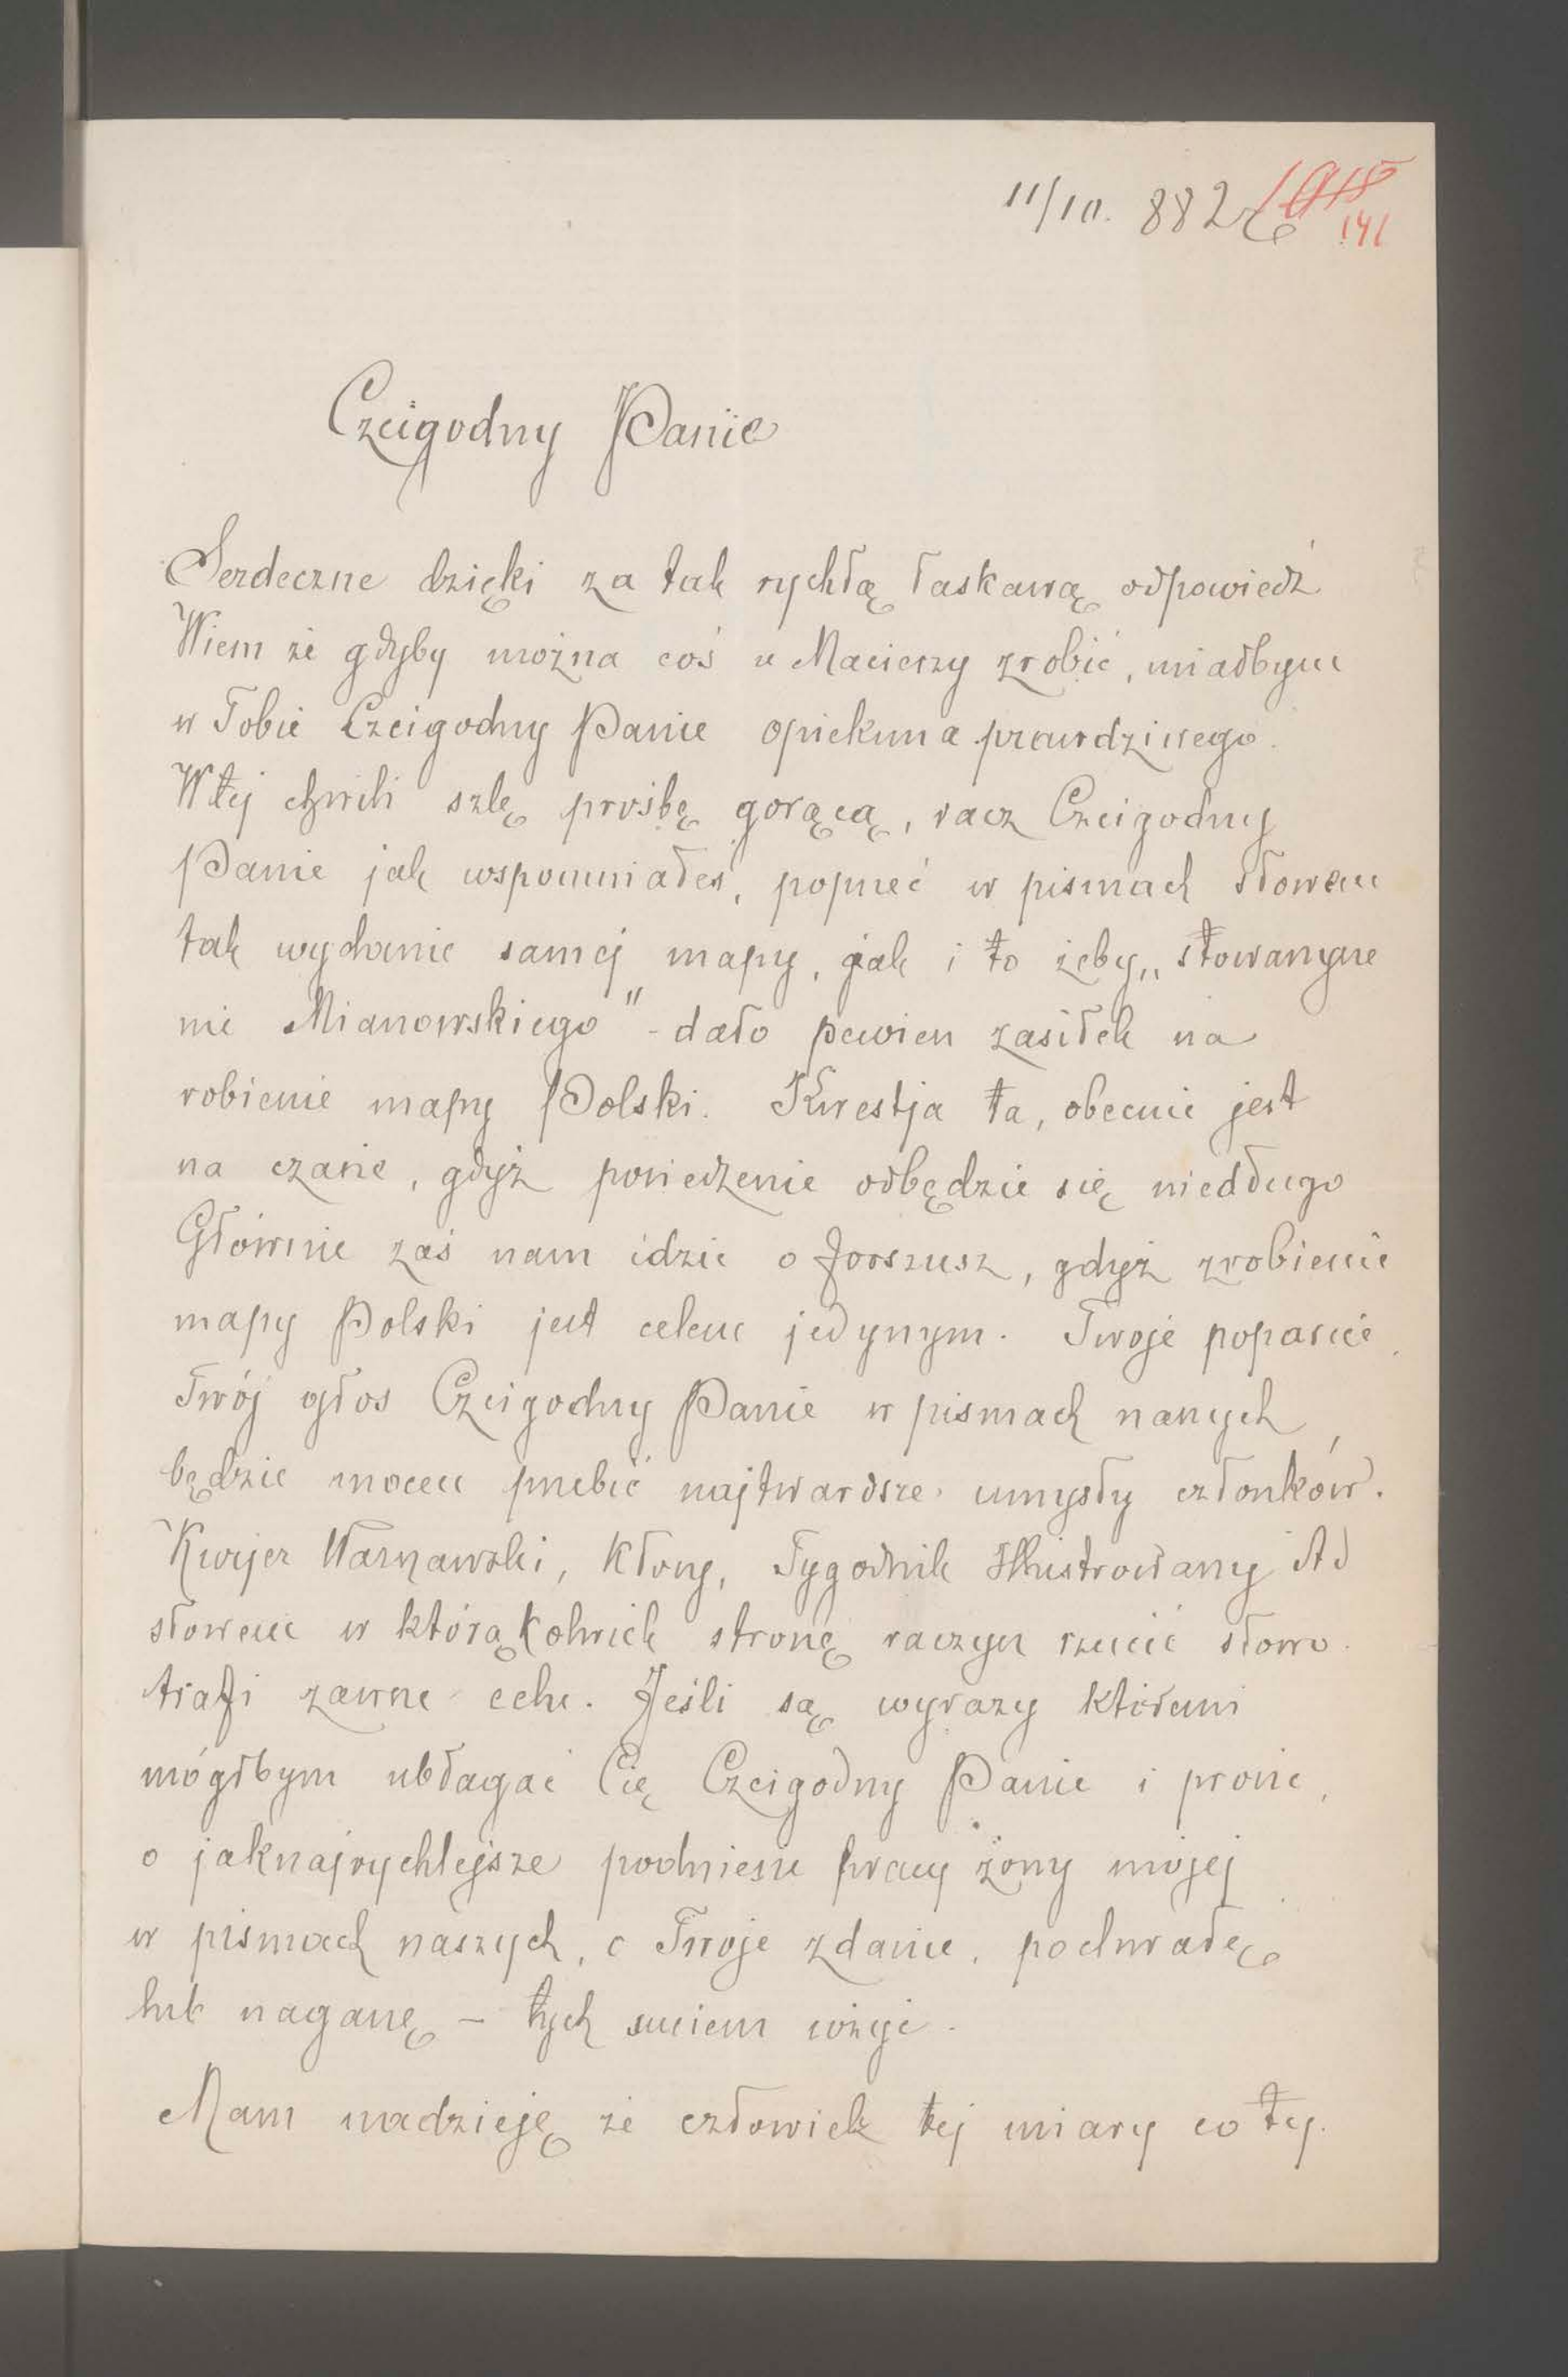 11/10. 882 r
141
Czcigodny Panie
Serdeczne dzięki za tak rychłą łaskawą odpowiedź
Wiem że gdyby można coś u Macierzy zrobić, miałbym
w Tobie Czcigodny Panie opiekuna prawdziwego.
W tej chwili szlę prośbę gorącą, racz Czcigodny
Panie jak wspomniałeś, poprzeć w pismach słowem
tak wydanie samej mapy, jak i to żeby „stowarzysze
nie Mianowskiego" - dało pewien zasiłek na
robienie mapy Polski. Kwestja ta, obecnie jest
na czasie, gdyż posiedzenie odbędzie się niedługo
Głównie zaś nam idzie o forszusz, gdyż zrobienie
mapy Polski jest celem jedynym. Twoje poparcie,
Twój głos Czcigodny Panie w pismach naszych,
będzie mocen przebić najtwardsze umysły członków.
Kurjer Warszawski, Kłosy, Tygodnik Illustrowany itd
słowem w którąkolwiek stronę raczysz rzucić słowo
trafi zawsze echo. Jeśli są wyrazy któremi
mógłbym ubłagać Cię Czcigodny Panie i proszę,
o jaknajrychlejsze podniesie pracy żony mojej
w pismach naszych, o Twoje zdanie, pochwałę
lub naganę – tych użyć.
Mam nadzieję że człowiek tej miary co ty.